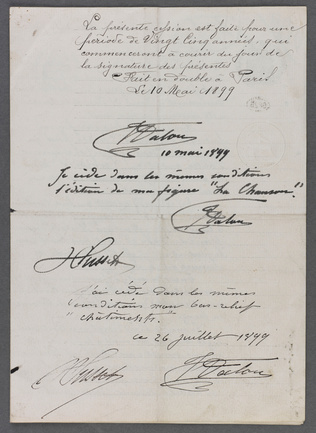 La présente cession est faite pour une
période de Vingt Cinq années, qui
commenceront à courir du jour de
la signature des présentes
Fait en double à Paris
Le 10 Mai 1899
J Dalou
10 mai 1899
Je cède dans les mêmes conditions
l'édition de ma figure "La Chanson".
J Dalou
J'ai cédé dans les mêmes
conditions mon bas-relief
ce 26 juillet 1899
J Dalou